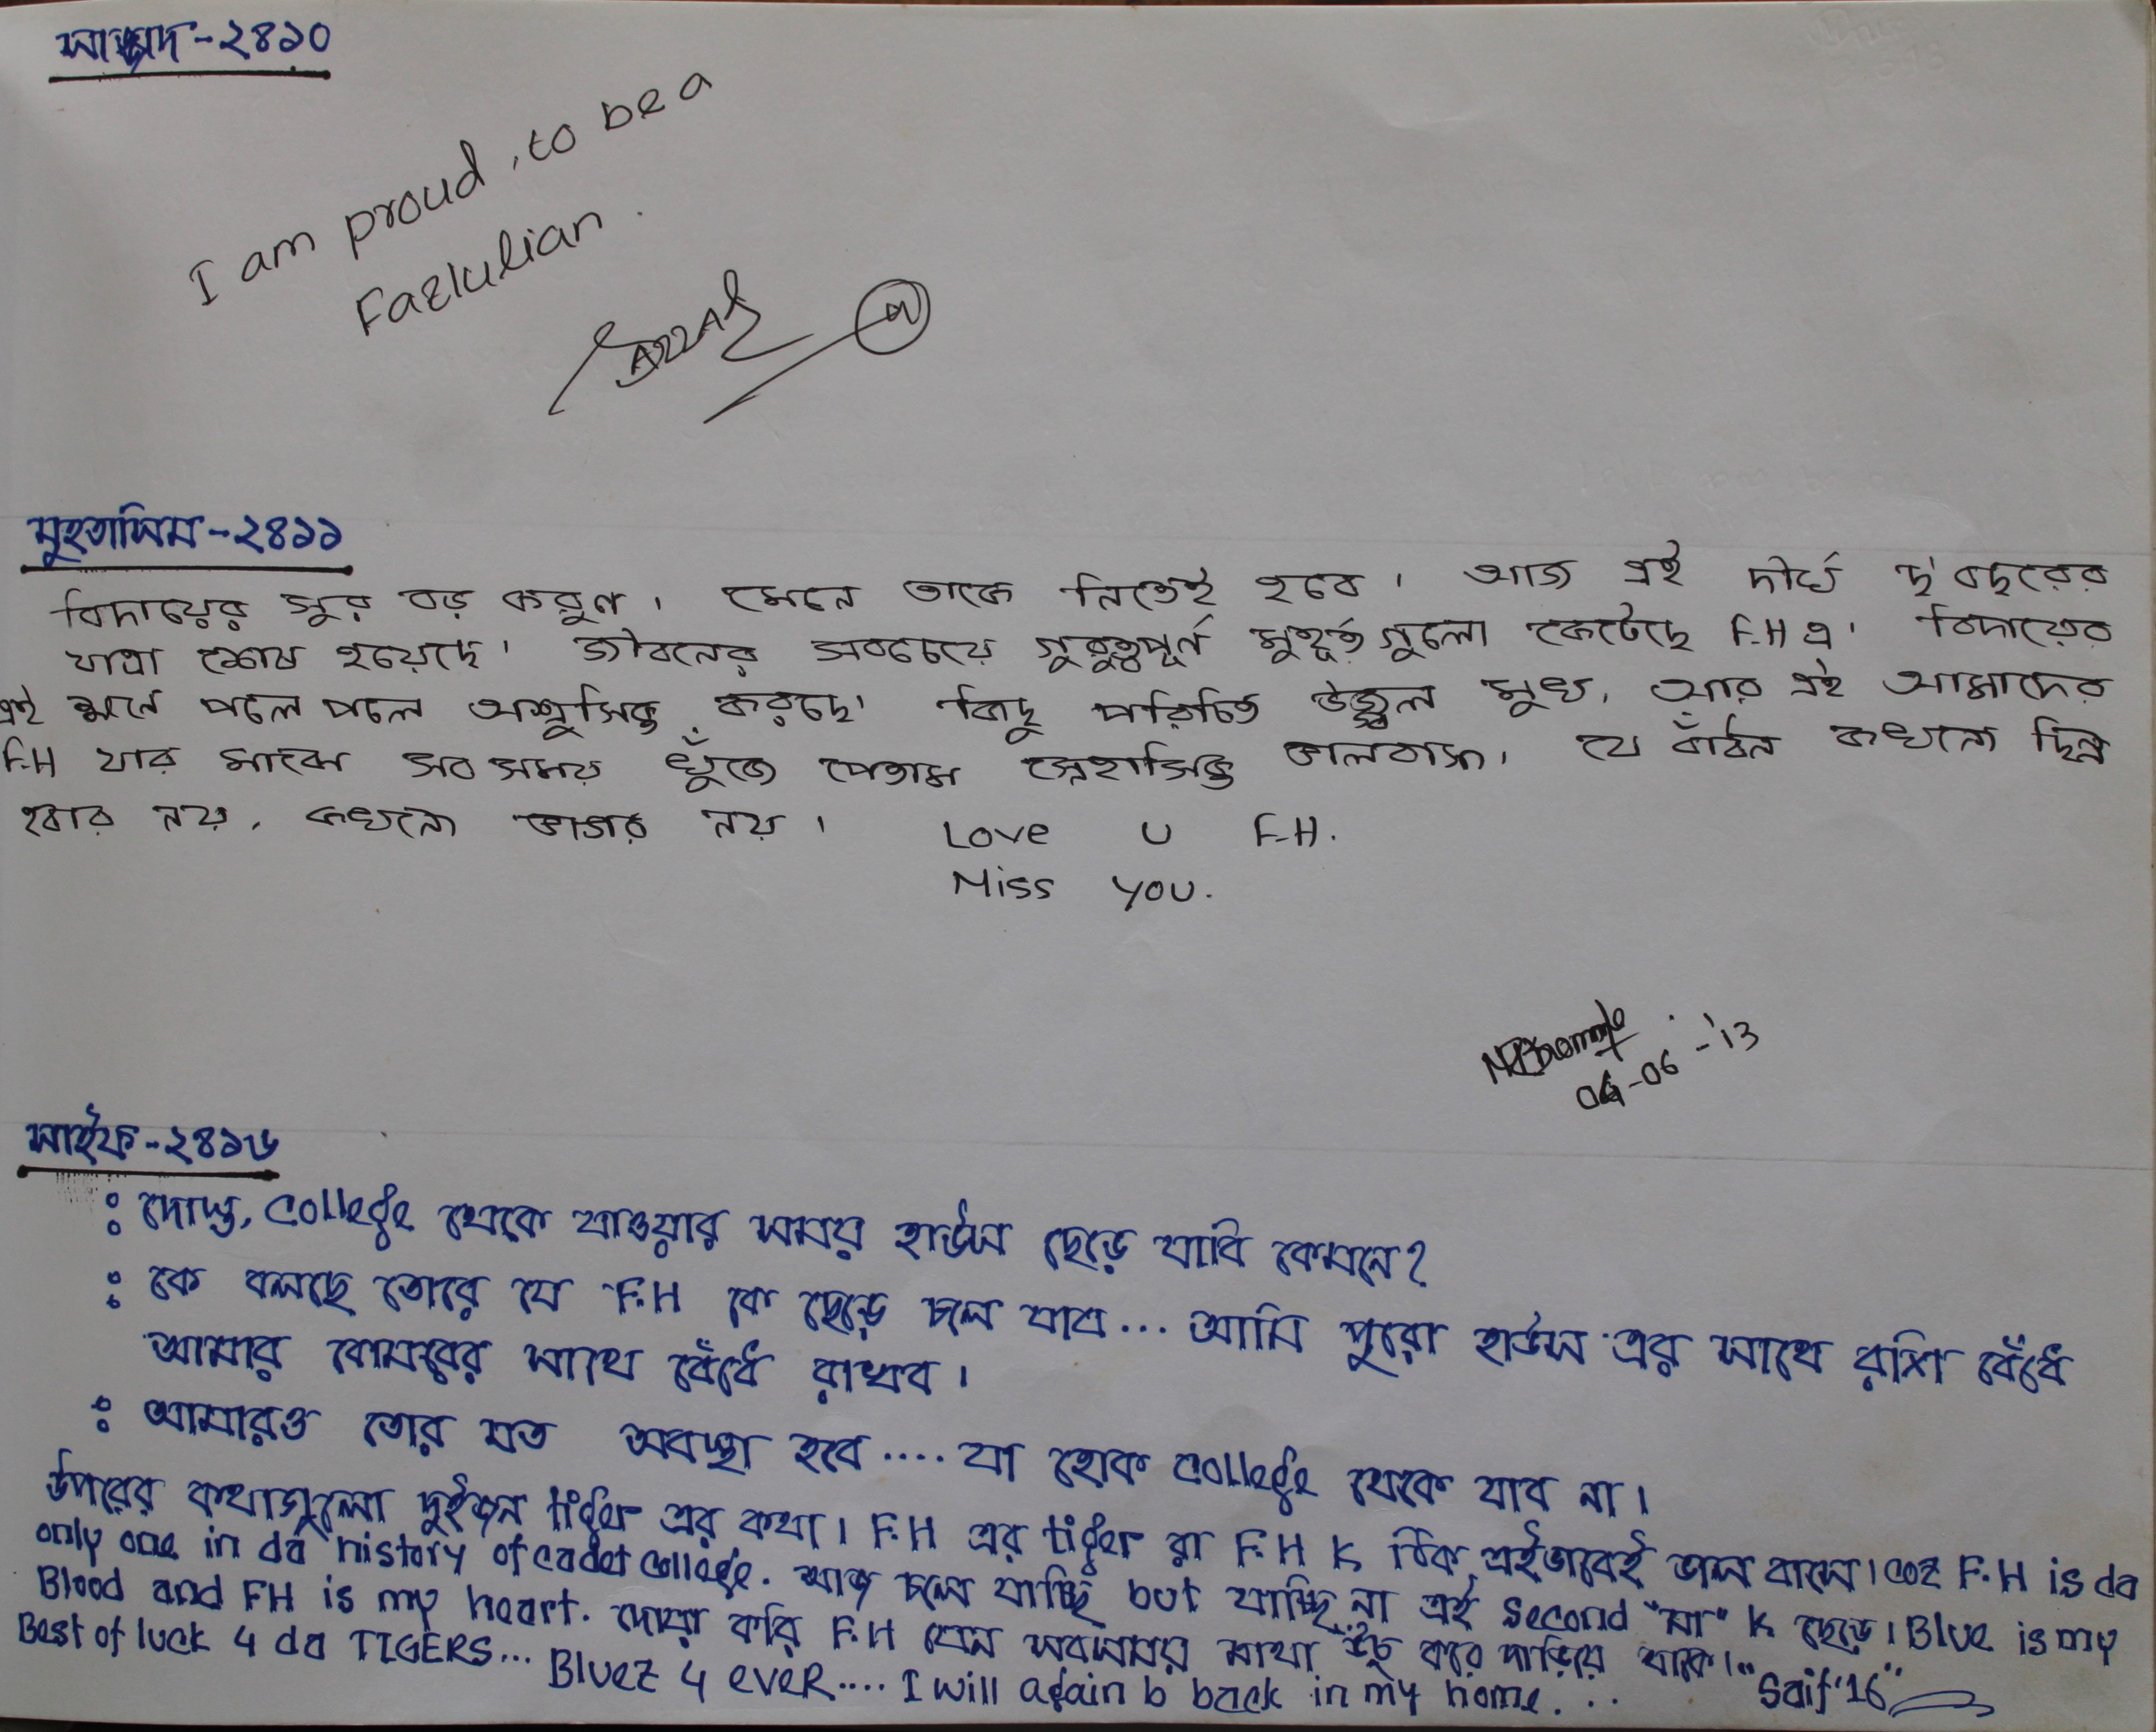 সাজ্জাদ-২৪১০
I am proud, to be a
Fazlulian.
মুহতাসিম-২৪১১
বিদায়ের সুর বড় করুণ। মেনে তাকে নিতেই হবে। আজ এই দীর্ঘ ছ'বছরের
যাত্রা শেষ হয়েছে। জীবনের সবচেয়ে গুরুত্বপূর্ণ মুহূর্তগুলো কেটেছে F.H এ। বিদায়ের
এই ক্ষনে পলে পলে অশ্রুসিক্ত করছে। কিছু পরিচিত উজ্জ্বল মুখ, আর এই আমাদের
F.H যার মাঝে সব সময় খুঁজে পেতাম স্নেহাসিক্ত ভালবাসা। যে বাঁধন কখনো ছিন্ন
হবার নয়, কখনো ভাঙার নয়। Love U F.H.
Miss you.
04-06-'13
সাইফ-২৪১৬
: দোস্ত, college থেকে যাওয়ার সময় হাউস ছেড়ে যাবি কেমনে?
: কে বলছে তোরে যে F.H কে ছেড়ে চলে যাব... আমি পুরো হাউস এর সাথে রশি বেঁধে
আমার কোমরের সাথে বেঁধে রাখব।
: আমারও তোর মত অবস্থা হবে.... যা হোক college থেকে যাব না।
উপরের কথাগুলো দুইজন tiger এর কথা। F.H এর tiger রা F.H K ঠিক এইভাবেই ভাল বাসে। coz F.H is da
only one in da history of cadet college. আজ চলে যাচ্ছি but যাচ্ছি না এই second "মা" K ছেড়ে। Blue is my
Blood and FH is my heart. দোয়া করি F.H যেন সবসময় মাথা উঁচু করে দাড়িয়ে থাকে।
Best of luck 4 da TIGERS... Bluez 4 eveR.... I will again b back in my home... "Saif'16"